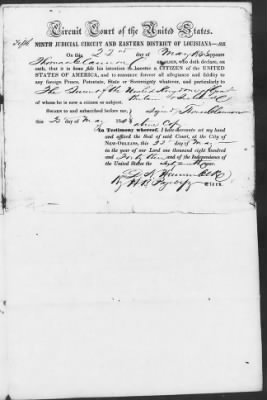 Circuit Court of the United States.
NINTH JUDICIAL CIRCUIT AND EASTERN DISTRICT OF LOUISIANA
On this 22nd day of May appears
Thomas Cannon an ALIEN, who doth declare, on
oath, that it is bona fide his intention to become a CITIZEN OF THE UNITED
STATES OF AMERICA, and to renounce forever all allegiance and fidelity to
any foreign Prince, Potentate, State or Sovereignty whatever, and particularly to
The Queen of the United Kingdom of Great
Britain &
of whom he is now a citizen or subject.
SWORN to and subscribed before me Signed Thomas Cannon
this 22 day of May 184 a true Copy
In Testimony whereof, I have hereunto set my hand
and affixed the Seal of said Court, at the City of
NEW-ORLEANS, this 22 day of May
in the year of our Lord one thousand eight hundred
and Forty and of the Independence of
the United States the
Clerk.